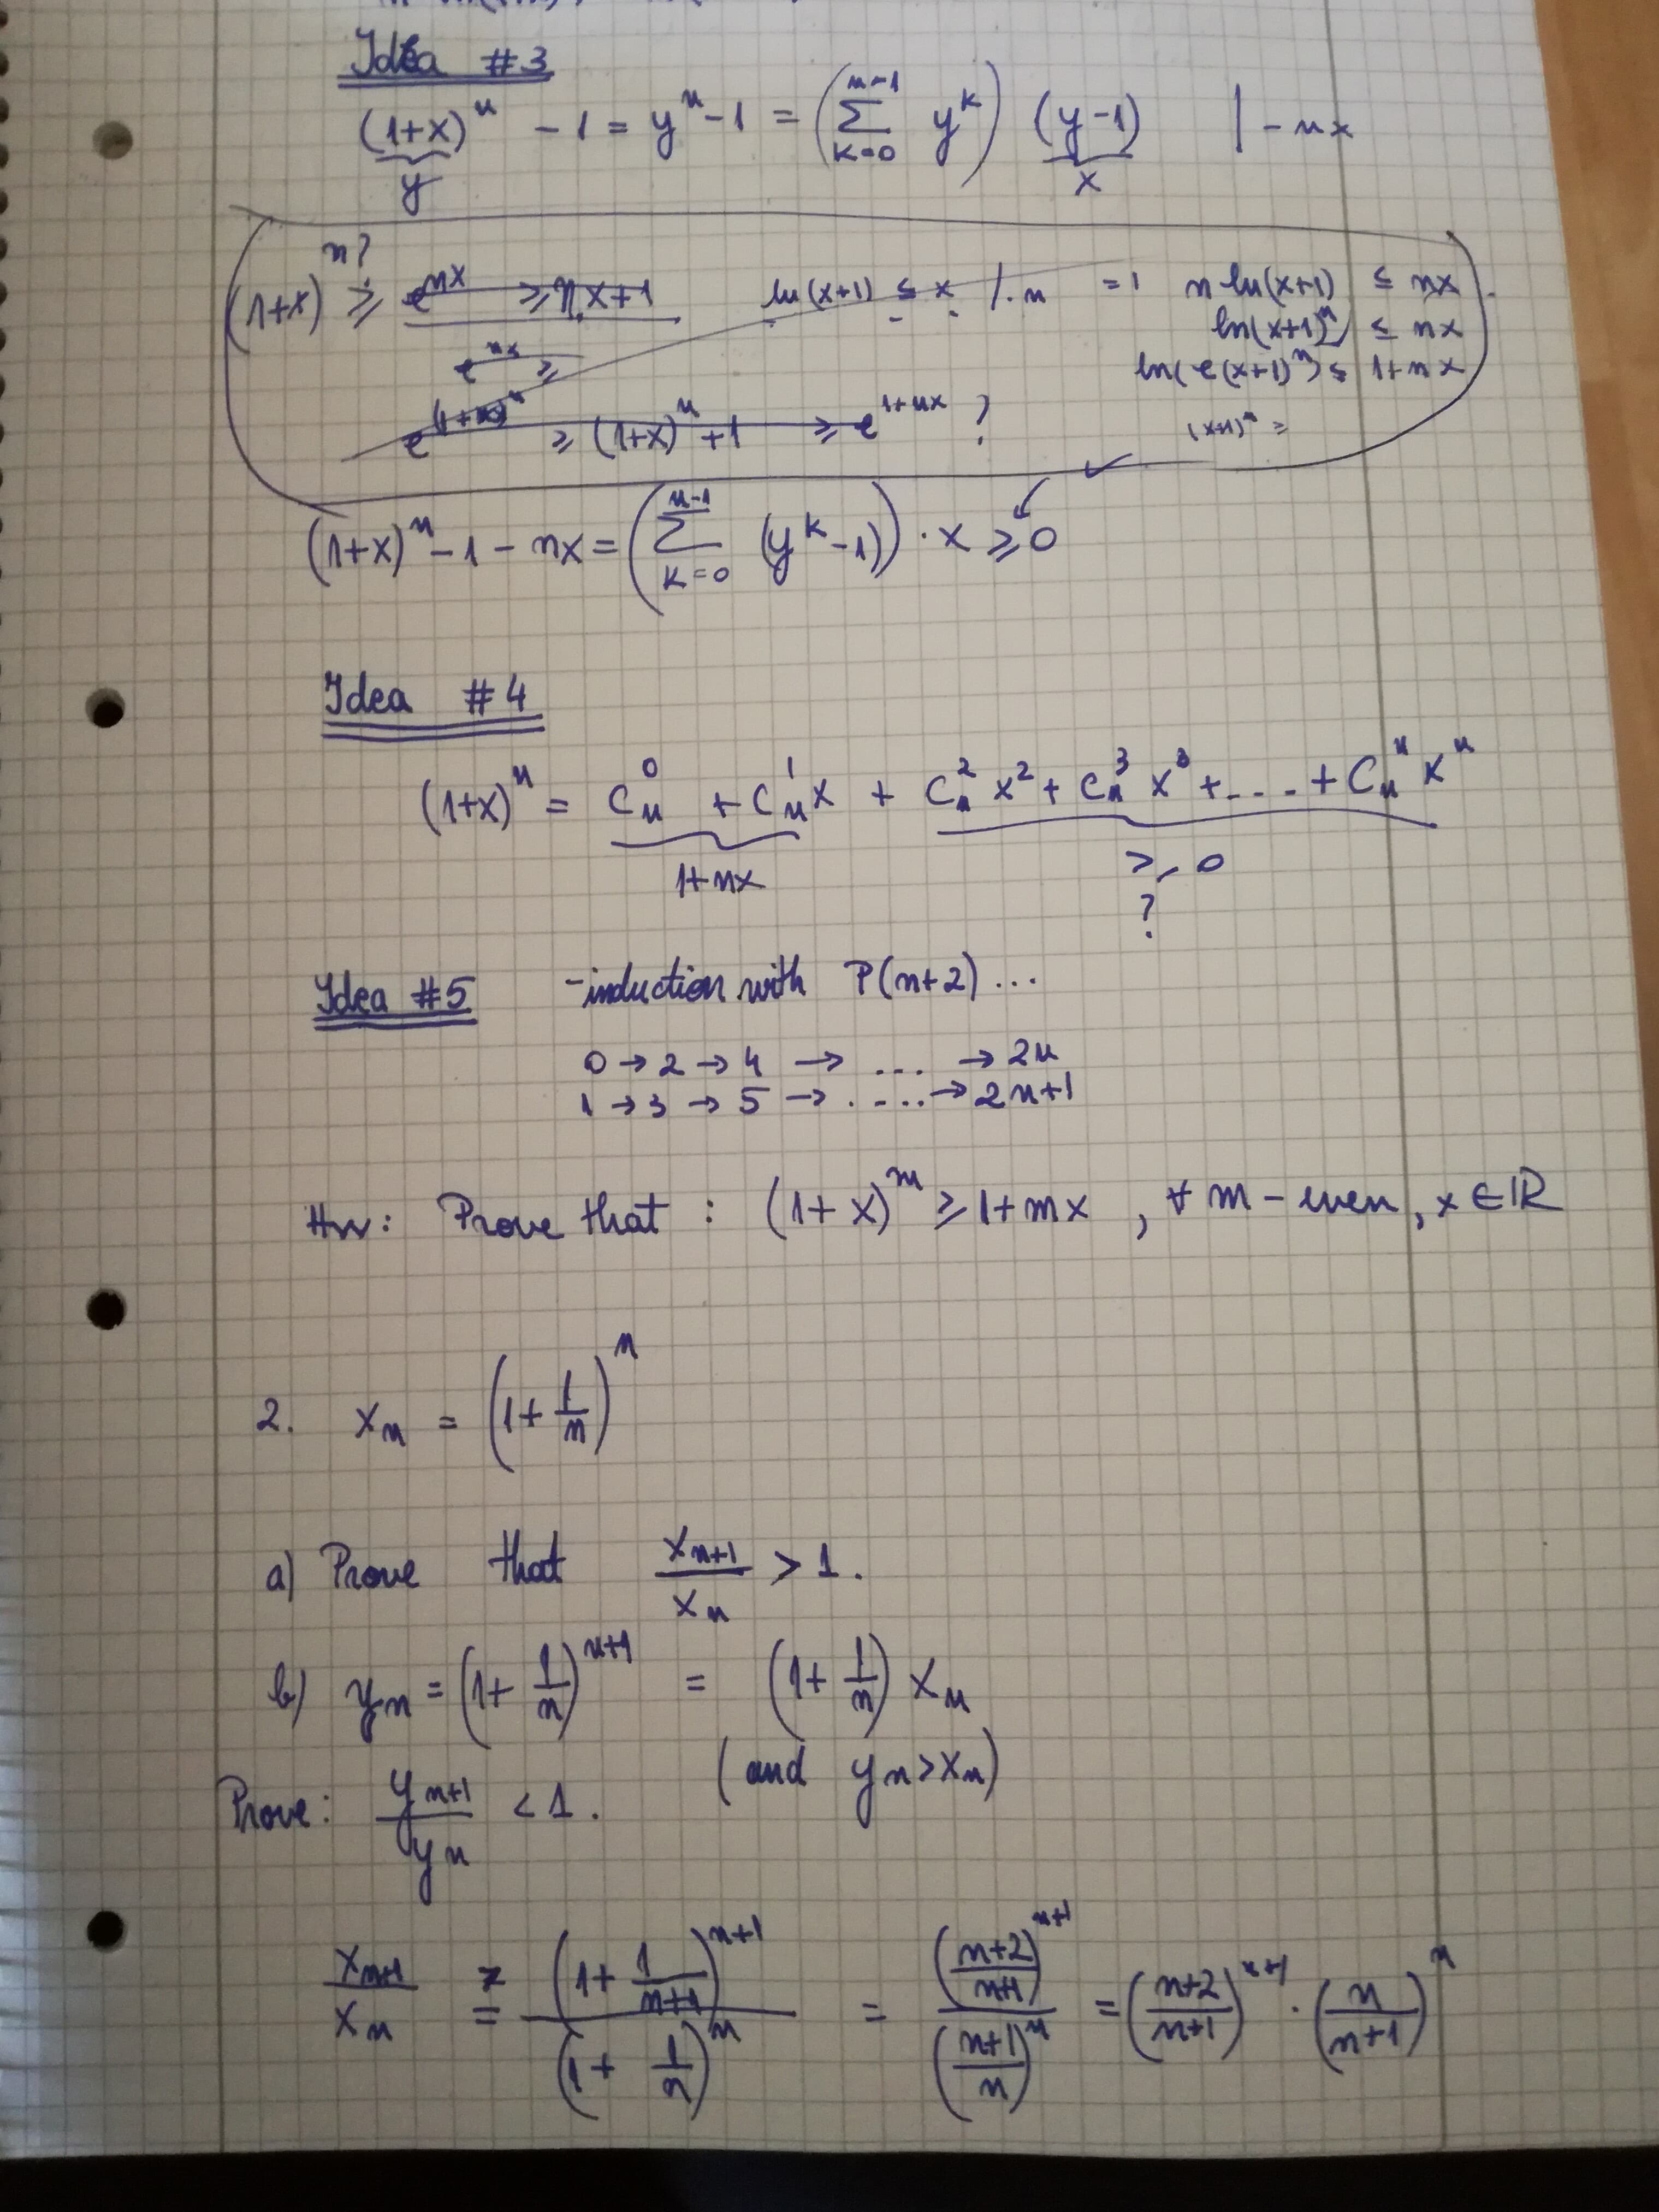 Idea #3
(1+x)^n - 1 = y^n - 1 = (∑_{k=0}^{n-1} y^k) (y-1) | - nx
y x
(1+x)^{n?} ≥ e^{nx} ≥ nx+1 ln(x+1) ≤ x /·n =1 n ln(x+1) ≤ nx
ln(x+1)^n ≤ nx
e^{nx} ≥ ln(e(x+1)^n) ≤ 1+nx
e^{(1+x)^n} ≥ (1+x)^n + 1 ≥ e^{1+nx} ? (x+1)^n =
(1+x)^n - 1 - nx = (∑_{k=0}^{n-1} (y^k - 1)) · x ≥ 0 ✓
Idea #4
(1+x)^n = C_n^0 + C_n^1 x + C_n^2 x^2 + C_n^3 x^3 + .... + C_n^n x^n
1+nx ≥ 0
?
Idea #5 -induction with P(n+2) ...
0 → 2 → 4 → .... → 2n
1 → 3 → 5 → ..... → 2n+1
HW: Prove that : (1+x)^m ≥ 1+mx , ∀ m - even, x ∈ ℝ
2. x_n = (1 + 1/n)^n
a) Prove that x_{n+1}/x_n > 1.
b) y_n = (1 + 1/n)^{n+1} = (1 + 1/n) x_n
(and y_n > x_n)
Prove: y_{n+1}/y_n < 1.
x_{n+1}/x_n = (1 + 1/(n+1))^{n+1} / (1 + 1/n)^n = ((n+2)/(n+1))^{n+1} / ((n+1)/n)^n = ((n+2)/(n+1))^{n+1} · (n/(n+1))^n